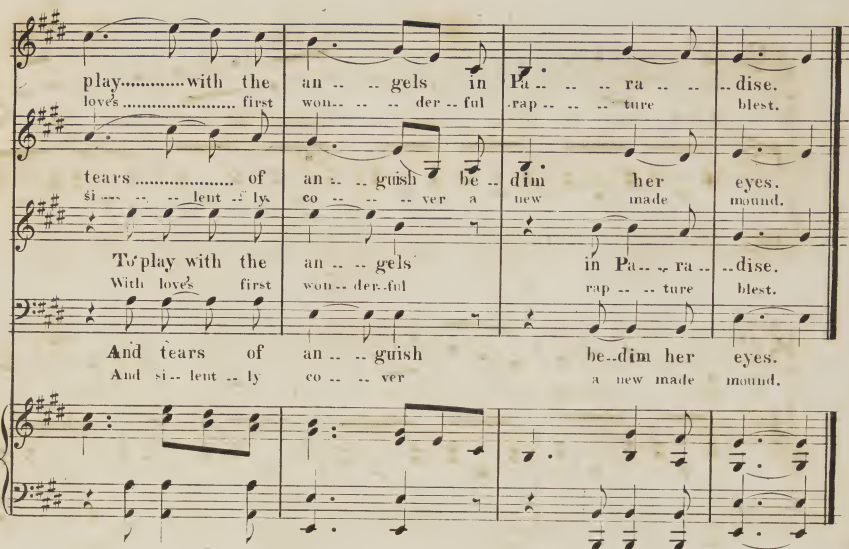 play.............with the an-- -- gels in Pa-- -- -- ra-- -- --dise.
love's................. first won-- -- -- der--ful rap-- -- -- ture blest.
tears................. of an-- -- guish be-- dim her eyes.
si-- -- -- lent--ly. co-- -- -- ver a new made mound.
To play with the an-- -- gels in Pa-- -- ra-- --dise.
With love's first won-- der--ful rap-- -- ture blest.
And tears of an-- -- guish be--dim her eyes.
And si-- lent--ly co-- -- ver a new made mound.